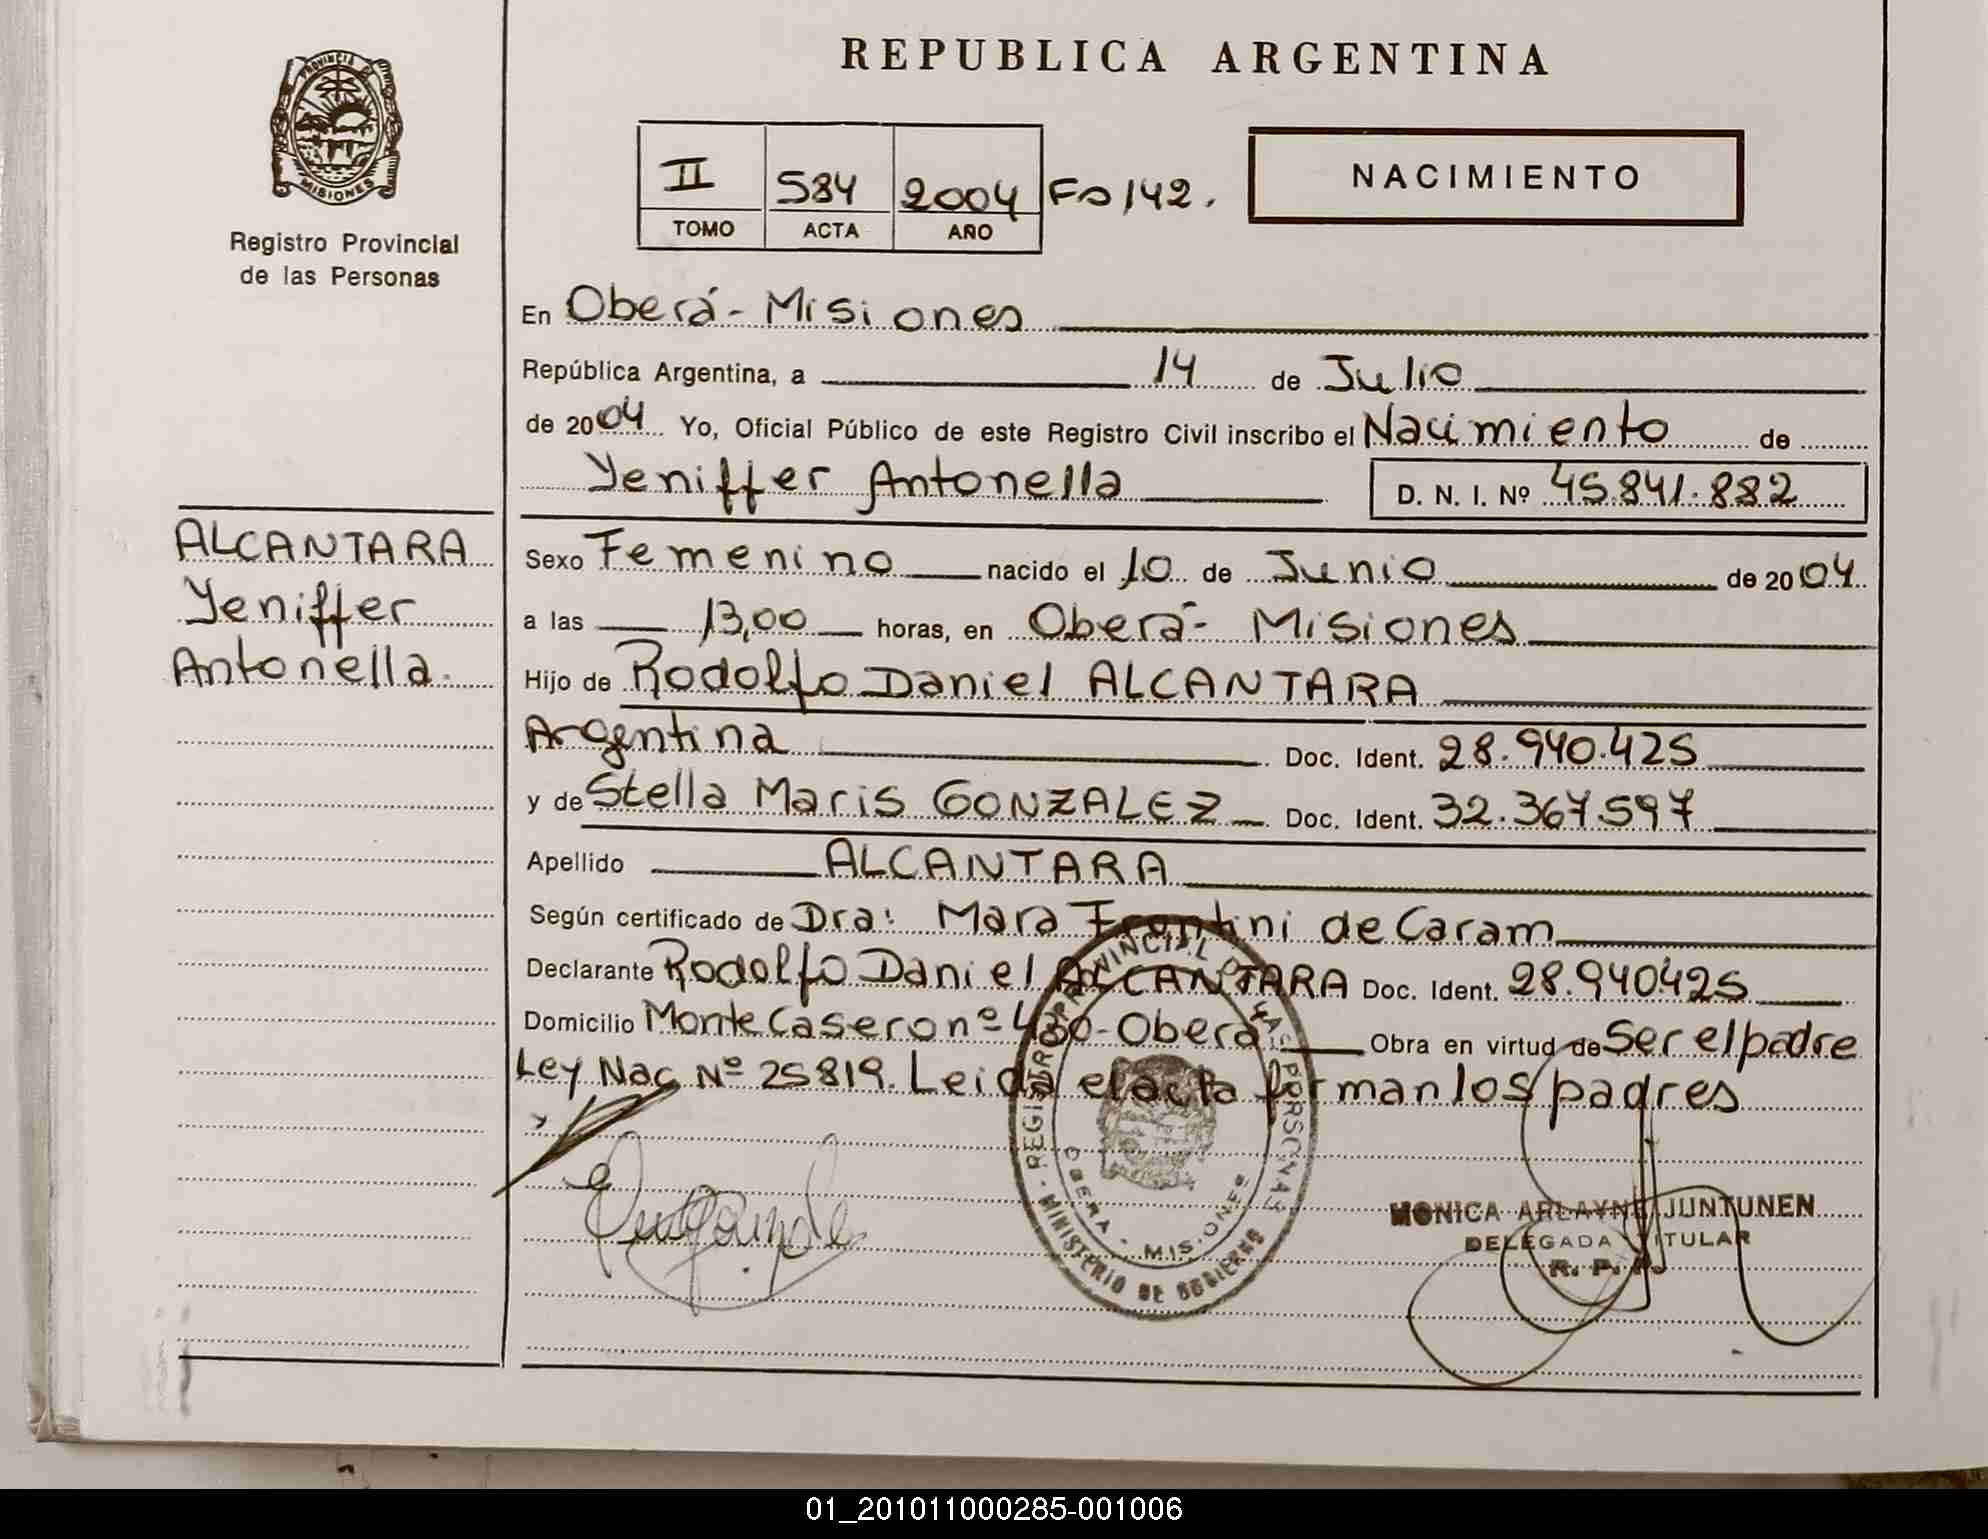 REPUBLICA ARGENTINA
PROVINCIA DE
MISIONES
Registro Provincial
de las Personas
II 584 2004 Fo 142.
TOMO ACTA AÑO
NACIMIENTO
En Oberá - Misiones
República Argentina, a 14 de Julio
de 2004 Yo, Oficial Público de este Registro Civil inscribo el Nacimiento de
Yeniffer Antonella D. N. I. Nº 45.841.882
ALCANTARA
Yeniffer
Antonella.
Sexo Femenino nacido el 10 de Junio de 2004
a las 13,00 horas, en Oberá - Misiones
Hijo de Rodolfo Daniel ALCANTARA
Argentina Doc. Ident. 28.940.425
y de Stella Maris GONZALEZ Doc. Ident. 32.367.597
Apellido ALCANTARA
Según certificado de Dra: Mara Frontini de Caram
Declarante Rodolfo Daniel ALCANTARA Doc. Ident. 28.940425
Domicilio Monte Casero nº 430 - Oberá Obra en virtud de Ser el padre
Ley Nac Nº 25819. Leida el acta firman los padres
REGISTRO PROVINCIAL DE LAS PERSONAS
OBERA - MISIONES
MINISTERIO DE GOBIERNO
MONICA ARLAYNE JUNTUNEN
DELEGADA TITULAR
R. P. P.
01_201011000285-001006